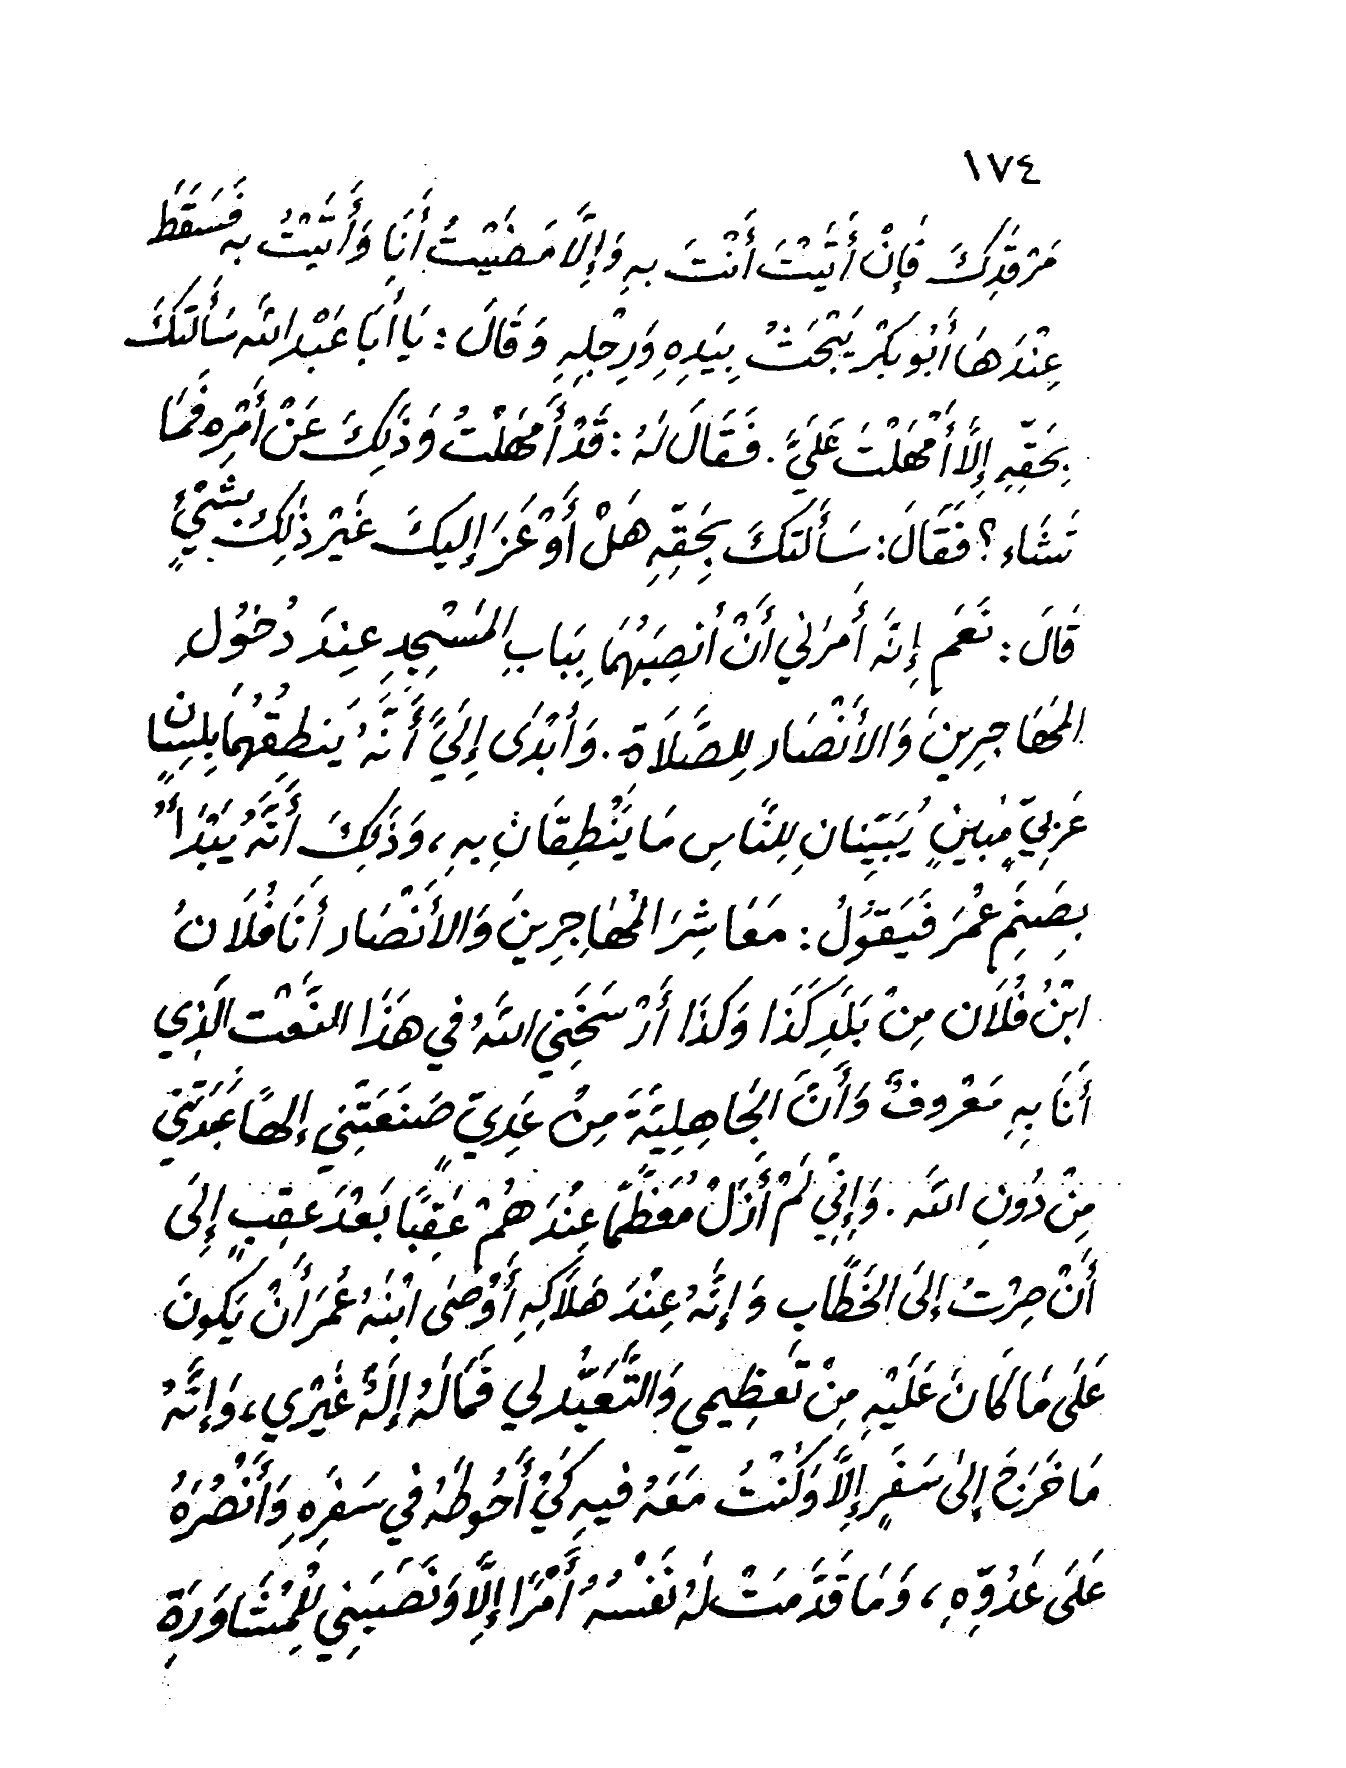 ١٧٤
مَرْقَدِكَ فَإِنْ أَتَيْتَ أَنْتَ بِهِ وَإِلَّا مَضَيْتُ أَنَا وَأَتَيْتُ بِهِ فَسَقَطَ
عِنْدَهَا أَبُو بَكْرٍ يَبْحَثُ بِيَدِهِ وَرِجْلِهِ وَقَالَ : يَا أَبَا عَبْدِ اللَّه سَأَلْتَكَ
بِحَقِّهِ إِلَّا أَمْهَلْتَ عَلَيَّ . فَقَالَ لَهُ : قَدْ أَمْهَلْتُ وَذَلِكَ عَنْ أَمْرِهِ فَمَا
تَشَاء ؟ فَقَالَ : سَأَلْتَكَ بِحَقِّهِ هَلْ أَوْعَزَ إِليكَ غَيْر ذَلِكَ بِشَيْءٍ
قَالَ : نَعَم إِنَّهُ أَمَرَنِي أَنْ أُنصِبَهُمَا بِبَابِ المَسْجِدِ عِندَ دُخُولِ
المُهَاجِرِينَ وَالأَنْصَار لِلصَّلَاة . وَأَبْدَى إِلَيَّ أَنَّهُ يَنطِقُهُمَا بِلِسَانٍ
عَرَبِيٍّ مُبِينٍ يُبَيِّنَانِ لِلنَّاسِ مَا يَنْطِقَانِ بِهِ ، وَذَلِكَ أَنَّهُ يَبْدَأُ
بِصَنَمِ عُمَرَ فَيَقُولُ : مَعَاشِرَ المُهَاجِرِينَ وَالأَنْصَار أَنَا فُلَانُ
ابْنُ فُلَان مِنْ بَلَدِ كَذَا وَكَذَا أَرْسَخَنِي اللَّهُ فِي هَذَا النَّعْت الَّذِي
أَنَا بِهِ مَعْرُوفٌ وَأَنَّ الجَاهِلِيَّةَ مِنْ عَدِيٍّ صَنَعَتْنِي إِلهًا عَبَدَتْنِي
مِنْ دُونِ اللَّه . وَإِنِّي لَمْ أَزَلْ مُعَظَّمًا عِنْدَهُمْ عَقِبًا بَعْدَ عَقِبٍ إِلَى
أَنْ صِرْتُ إِلَى الخَطَّابِ وَإِنَّهُ عِنْدَ هَلَاكِهِ أَوْصَى ابْنَهُ عُمَرَ أَنْ يَكُونَ
عَلَى مَا كَانَ عَلَيْهِ مِنْ تَعْظِيمِي وَالتَّعَبُّدِ لِي فَمَا لَهُ إِلَهٌ غَيْرِي ، وَإِنَّهُ
مَا خَرَجَ إِلَى سَفَرٍ إِلَّا وَكُنْتُ مَعَهُ فِيهِ كَيْ أَحُوطَهُ فِي سَفَرِهِ وَأَنْصُرَهُ
عَلَى عَدُوِّهِ ، وَمَا قَدَّمَتْ لَهُ نَفْسُهُ أَمْرًا إِلَّا وَنَصَبَنِي لِلْمُشَاوَرَةِ